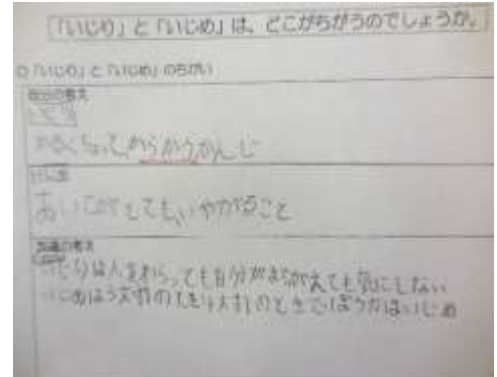 「いじり」と「いじめ」は、どこがちがうのでしょうか。
○「いじり」と「いじめ」のちがい
自分の考え
いじり
かるくちょっと、からかうかんじ
いじめ
あいてがとても、いやがること
友達の考え
いじりは人をわらっても自分がまちがえても気にしない
いじめは
のときでぼう力はいじめ